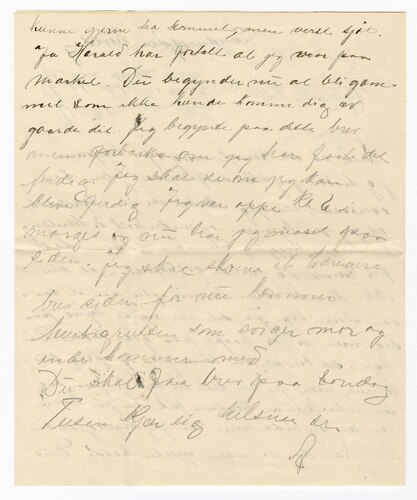 kunne gjerne ha kommet, men verst sjøl.
Ja Harald har fortalt at jeg var paa
marked. Du begynder nu at bli gam-
mel som ikke kunde komme dig av
gaarde det. Jeg begynte paa dette brev
som jeg har faat det
ferdig. Jeg skal se om jeg kan
blive ferdig. Jeg var oppe kl 6 i
morges og nu har jeg maset paa
siden. Jeg skal skrive et længere
brev siden for nu kommer
som sørger mor og
kommer med
Du skal faa brev paa Søndag
Tusen kjærlig hilsner